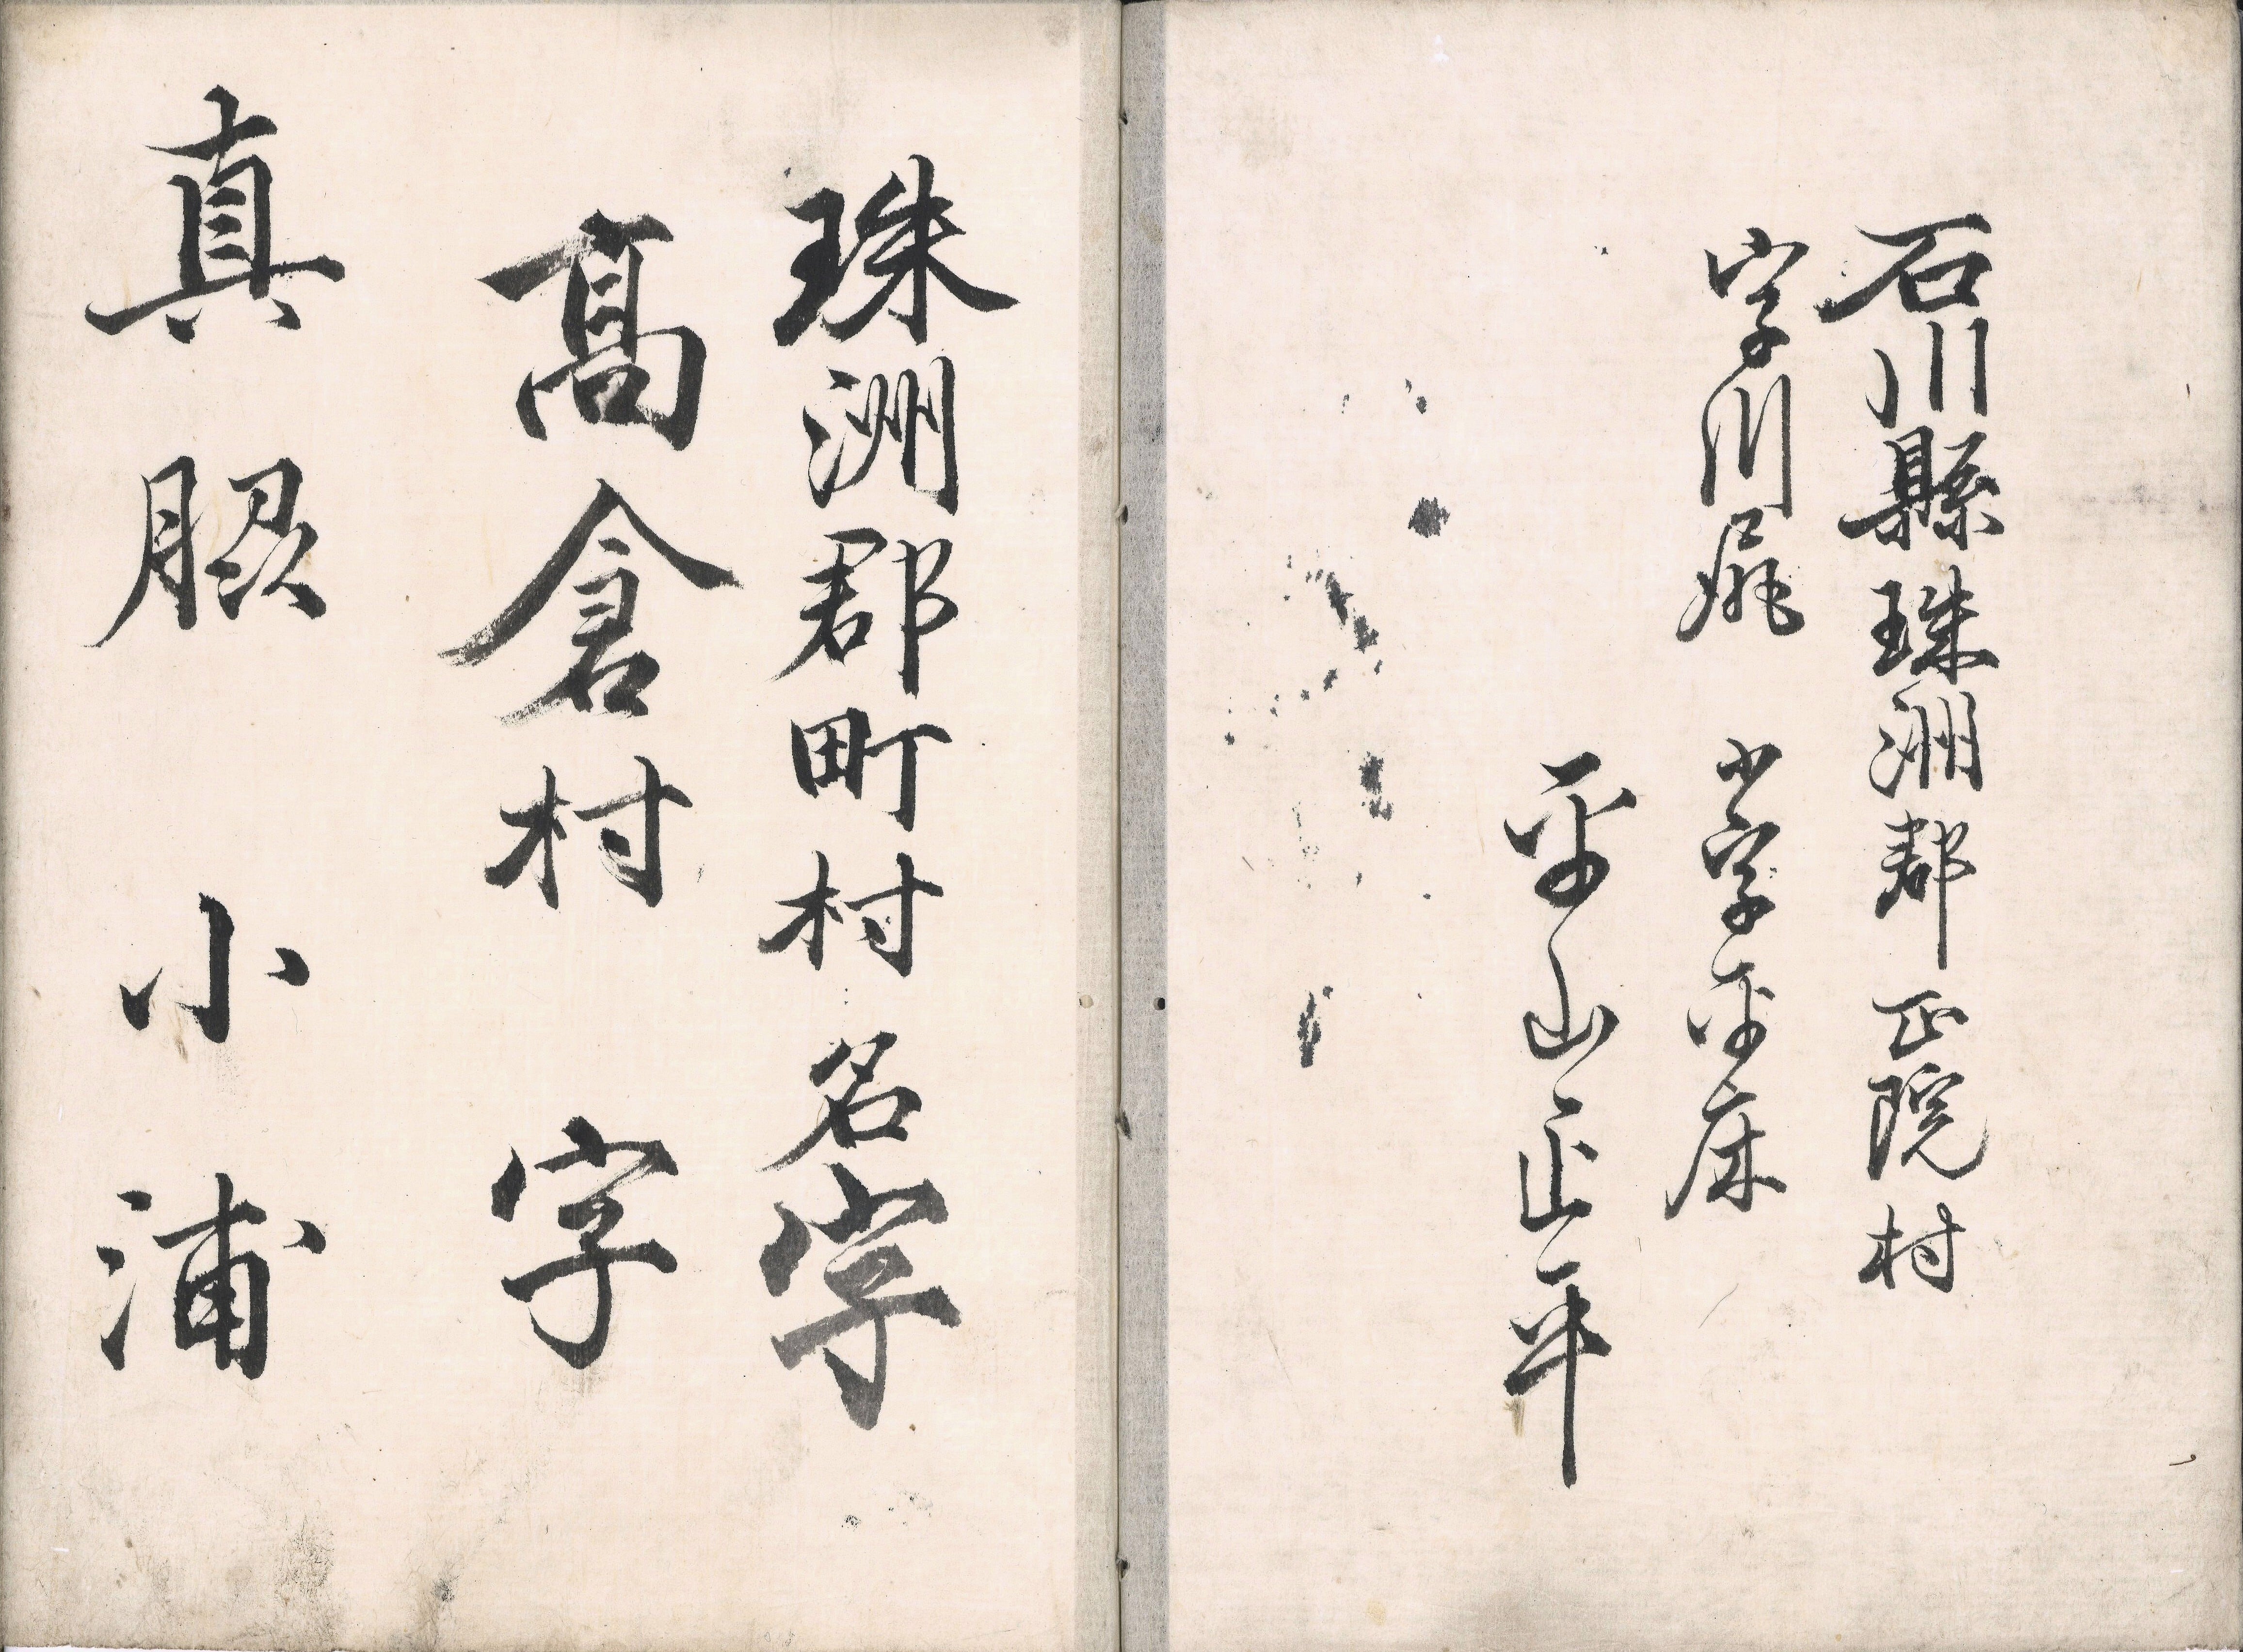 石川縣珠洲郡正院村
字川尻 小字平床
平山正平
珠洲郡町村名字
髙倉村 字
真脇 小浦